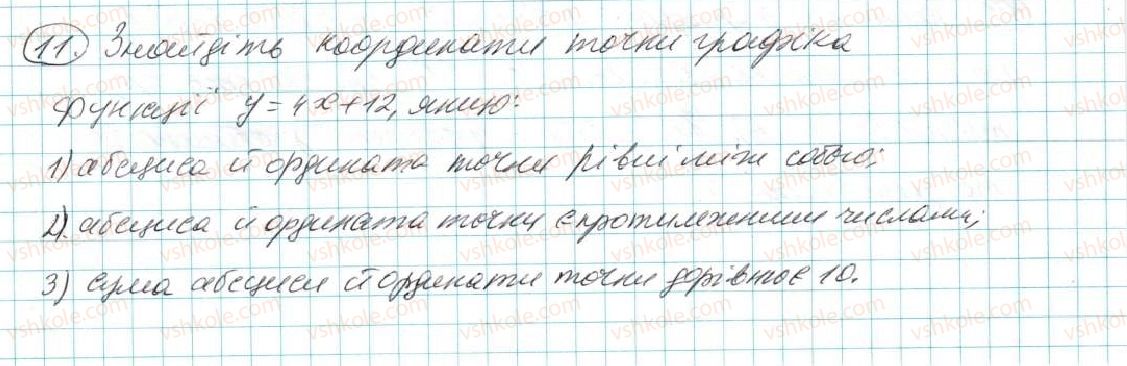 11. Знайдіть координати точки графіка
функції y = 4x + 12, якщо:
1) абсциса й ордината точки рівні між собою;
2) абсциса й ордината точки є протилежними числами;
3) сума абсциси й ординати точки дорівнює 10.